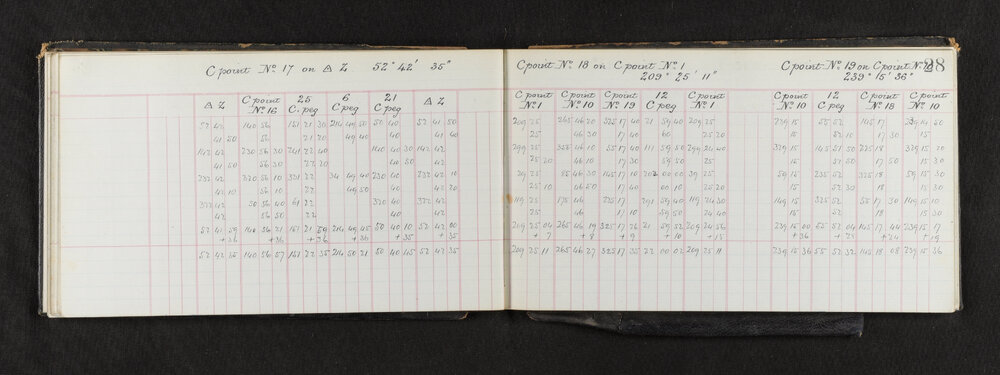 C point No 17 on △ Z. 52° 42' 35"
△ Z C point No 16 25 C. peg 6 C peg 21 C. peg △ Z
52 42 140 56 161 21 30 214 49 50 50 40 52 41 50
41 50 56 21 20 49 40 40 41 40
142 42 230 56 30 241 22 40 140 40 30 142 42
41 50 56 30 22 20 40 50 42
232 42 320 56 10 331 22 34 49 40 230 40 232 42 10
42 10 56 10 22 49 50 40 42 20
322 42 50 56 40 61 22 320 40 322 42
42 56 50 22 40 42
52 41 59 140 56 21 151 21 59 214 49 45 50 40 10 52 42 00
+ 36 + 36 + 36 + 36 + 35 + 35
52 42 35 140 56 57 151 22 35 214 50 21 50 40 45 52 42 35
28
C point No 18 on C point No 1
209° 25' 11"
C point No 1 C point No 10 C point No 19 12 C peg C point No 1
209 25 265 46 20 325 17 40 21 59 40 209 25
25 46 30 17 40 60 25 20
299 25 355 46 10 55 17 40 111 59 50 299 24 40
25 20 46 10 17 30 59 50 25
29 25 85 46 30 145 17 10 202 00 00 29 25
25 10 46 50 17 40 00 10 25 20
119 25 175 46 235 17 291 59 40 119 24 30
25 46 17 10 59 50 24 40
209 25 04 265 46 19 325 17 26 21 59 52 209 24 56
+ 7 + 8 + 9 + 10 + 15
209 25 11 265 46 27 325 17 35 22 00 02 209 25 11
C point No 19 on C point No 10
239° 15' 36"
C point No 10 12 C peg C point No 18 C point No 10
239 15 55 52 145 17 239 14 50
15 52 10 17 30 15
329 15 145 51 50 235 18 329 15 20
15 51 50 17 50 15 30
59 15 235 52 325 18 59 15 30
15 52 30 18 15 30
149 15 325 52 55 17 30 149 15 10
15 52 18 15 30
239 15 00 55 52 04 145 17 44 239 15 17
+ 36 + 28 + 24 + 19
239 15 36 55 52 32 145 18 08 239 15 36